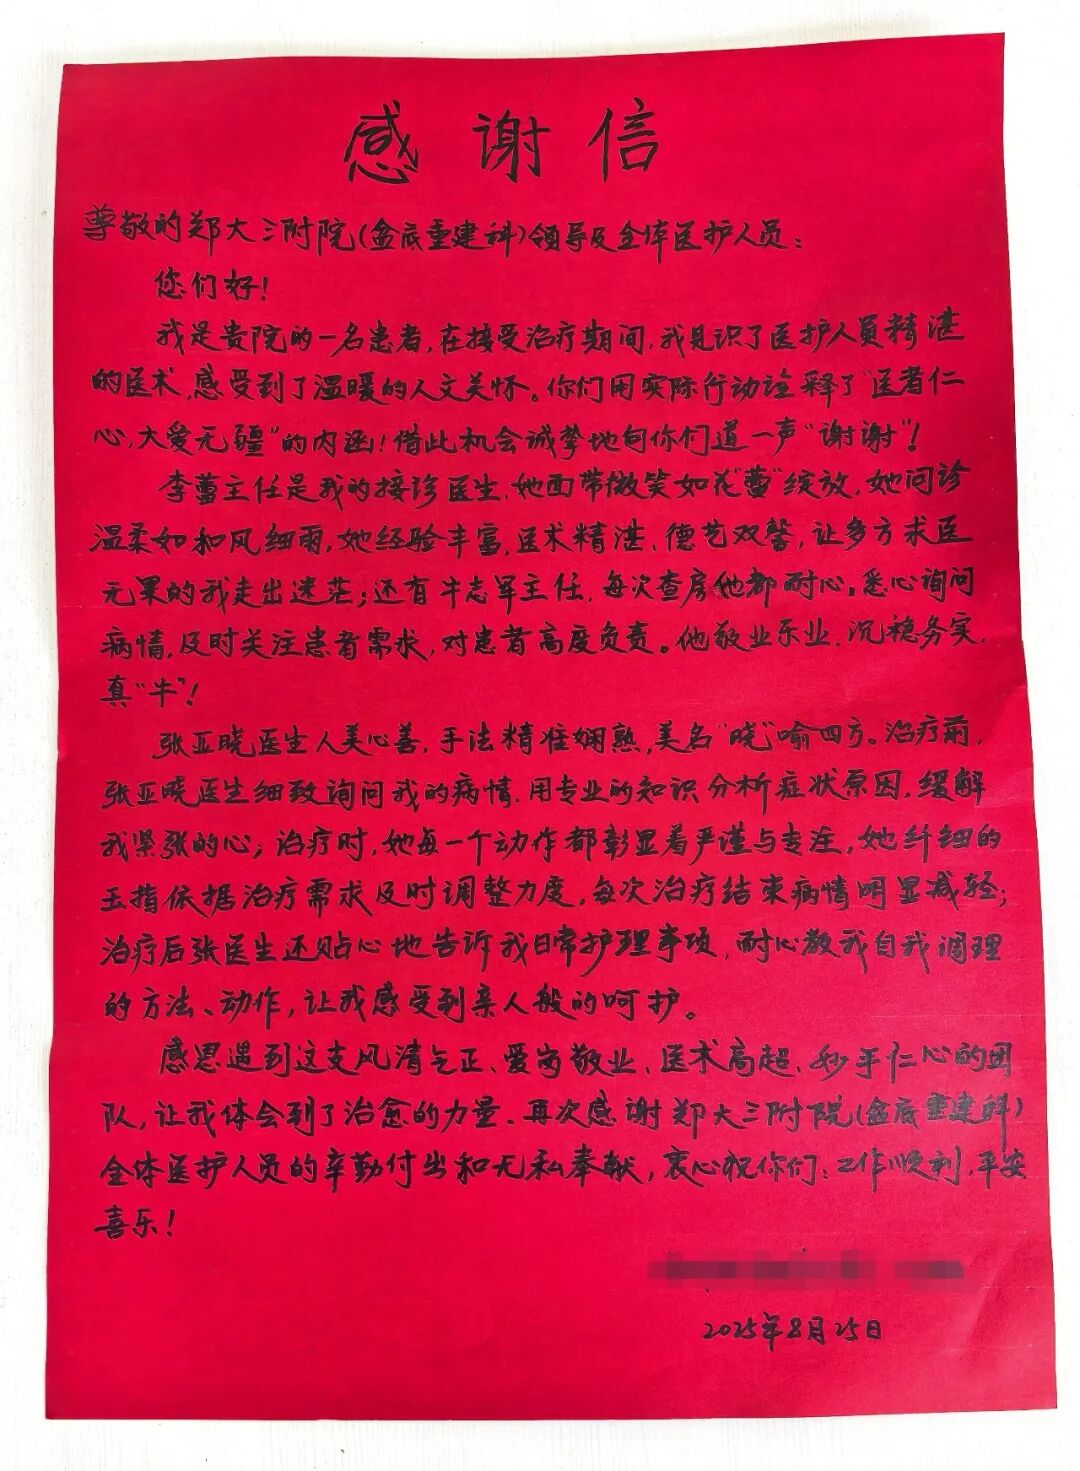 感谢信
尊敬的郑大三附院(盆底重建科)领导及全体医护人员:
您们好!
我是贵院的一名患者,在接受治疗期间,我见识了医护人员精湛
的医术,感受到了温暖的人文关怀。你们用实际行动诠释了"医者仁
心,大爱无疆"的内涵!借此机会诚挚地向你们道一声"谢谢"!
李蕾主任是我的接诊医生,她面带微笑如花"蕾"绽放,她问诊
温柔如和风细雨,她经验丰富,医术精湛、德艺双馨,让多方求医
无果的我走出迷茫;还有牛志军主任,每次查房他都耐心。悉心询问
病情,及时关注患者需求,对患者高度负责。他敬业乐业,沉稳务实,
真"牛"!
张亚晓医生人美心善,手法精准娴熟,美名"晓"喻四方。治疗前,
张亚晓医生细致询问我的病情,用专业的知识分析症状原因,缓解
我紧张的心;治疗时,她每一个动作都彰显着严谨与专注,她纤细的
玉指依据治疗需求及时调整力度,每次治疗结束病情明显减轻;
治疗后张医生还贴心地告诉我日常护理事项,耐心教我自我调理
的方法、动作,让我感受到亲人般的呵护。
感恩遇到这支风清气正、爱岗敬业、医术高超、妙手仁心的团
队,让我体会到了治愈的力量、再次感谢郑大三附院(盆底重建科)
全体医护人员的辛勤付出和无私奉献,衷心祝你们:工作顺利,平安
喜乐!
2025年8月25日